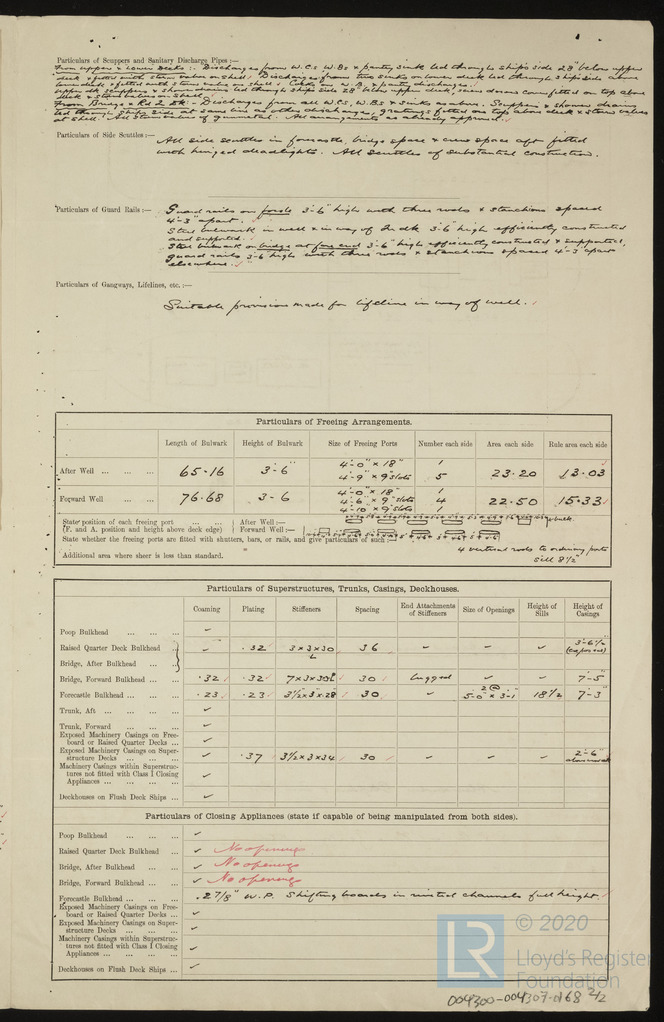 Particulars of Scuppers and Sanitary Discharge Pipes :—
From upper & Lower Decks :- Discharges from W.C.s W.Bs & pantry sink led through ship's side 28" below upper
deck & fitted with storm valves on shell. Discharges from two sinks on lower deck led through ship's side above
lower deck & fitted with storm valve on shell &
upper dk scuppers & shower drains led through ships side 28" below upper deck, fitted on top above
deck & storm valves on shell.
From Bridge & Rd 2 dk :- Discharges from all W.C.s, W.Bs & sinks as above. Scuppers & shower drains
led through ships side at same line as other discharges, gratings fitted on top above deck & storm valves
at shell. All storm valves of gunmetal. All arrangements as already approved.
Particulars of Side Scuttles :—
All side scuttles in forecastle, bridge space & crew space aft fitted
with hinged deadlights. All scuttles of substantial construction.
Particulars of Guard Rails :—
Guard rails on focsle 3'-6" high with three rods & stanchions spaced
4'-3" apart.
Steel bulwark in well & in way of Dk 3'-6" high efficiently constructed
and supported.
Steel bulwark on bridge at fore end 3'-6" high efficiently constructed & supported,
guard rails 3'-6 high with three rods & stanchions spaced 4'-3 apart
elsewhere.
Particulars of Gangways, Lifelines, etc. :—
Suitable provision made for lifeline in way of well.
Particulars of Freeing Arrangements.
Length of Bulwark Height of Bulwark Size of Freeing Ports Number each side Area each side Rule area each side
After Well 65·16 3'-6" 4'-0" × 18" 1 23·20 13·03
4'-9" × 9" slots 5
Forward Well 76·68 3-6 4'-0" × 18" 1 22·50 15·33
4'-6" × 9" slots 4
4'-10 × 9" slots 1
State position of each freeing port After Well :—
(F. and A. position and height above deck edge) Forward Well :—
State whether the freeing ports are fitted with shutters, bars, or rails, and give particulars of such :—
4 vertical rods to ordinary ports
Sill 8½"
Additional area where sheer is less than standard.
Particulars of Superstructures, Trunks, Casings, Deckhouses.
Coaming Plating Stiffeners Spacing End Attachments of Stiffeners Size of Openings Height of Sills Height of Casings
Poop Bulkhead ✓
Raised Quarter Deck Bulkhead ✓ ·32 3×3×30 L 36 – – – 3'-6½" (exposed)
Bridge, After Bulkhead
Bridge, Forward Bulkhead ·32 ·32 7×3×30 30 Lugged – – 7'-5"
Forecastle Bulkhead ·23 ·23 3½"×3"×28 30 – 2 @ 5'-0" × 3'-1" 18½ 7'-3"
Trunk, Aft ✓
Trunk, Forward ✓
Exposed Machinery Casings on Free-
board or Raised Quarter Decks ✓
Exposed Machinery Casings on Super-
structure Decks ✓ ·37 3½×3×34 30 – – – 2'-6"
Machinery Casings within Superstruc-
tures not fitted with Class I Closing
Appliances ✓
Deckhouses on Flush Deck Ships ✓
Particulars of Closing Appliances (state if capable of being manipulated from both sides).
Poop Bulkhead ✓
Raised Quarter Deck Bulkhead ✓ No openings
Bridge, After Bulkhead ✓ No openings
Bridge, Forward Bulkhead ✓ No openings
Forecastle Bulkhead 2⅞" W.P. Shifting boards in riveted channels full height.
Exposed Machinery Casings on Free-
board or Raised Quarter Decks ✓
Exposed Machinery Casings on Super-
structure Decks ✓
Machinery Casings within Superstruc-
tures not fitted with Class I Closing
Appliances ✓
Deckhouses on Flush Deck Ships ✓
LR © 2020
Lloyd's Register
Foundation
004300-004307-0168 2/2